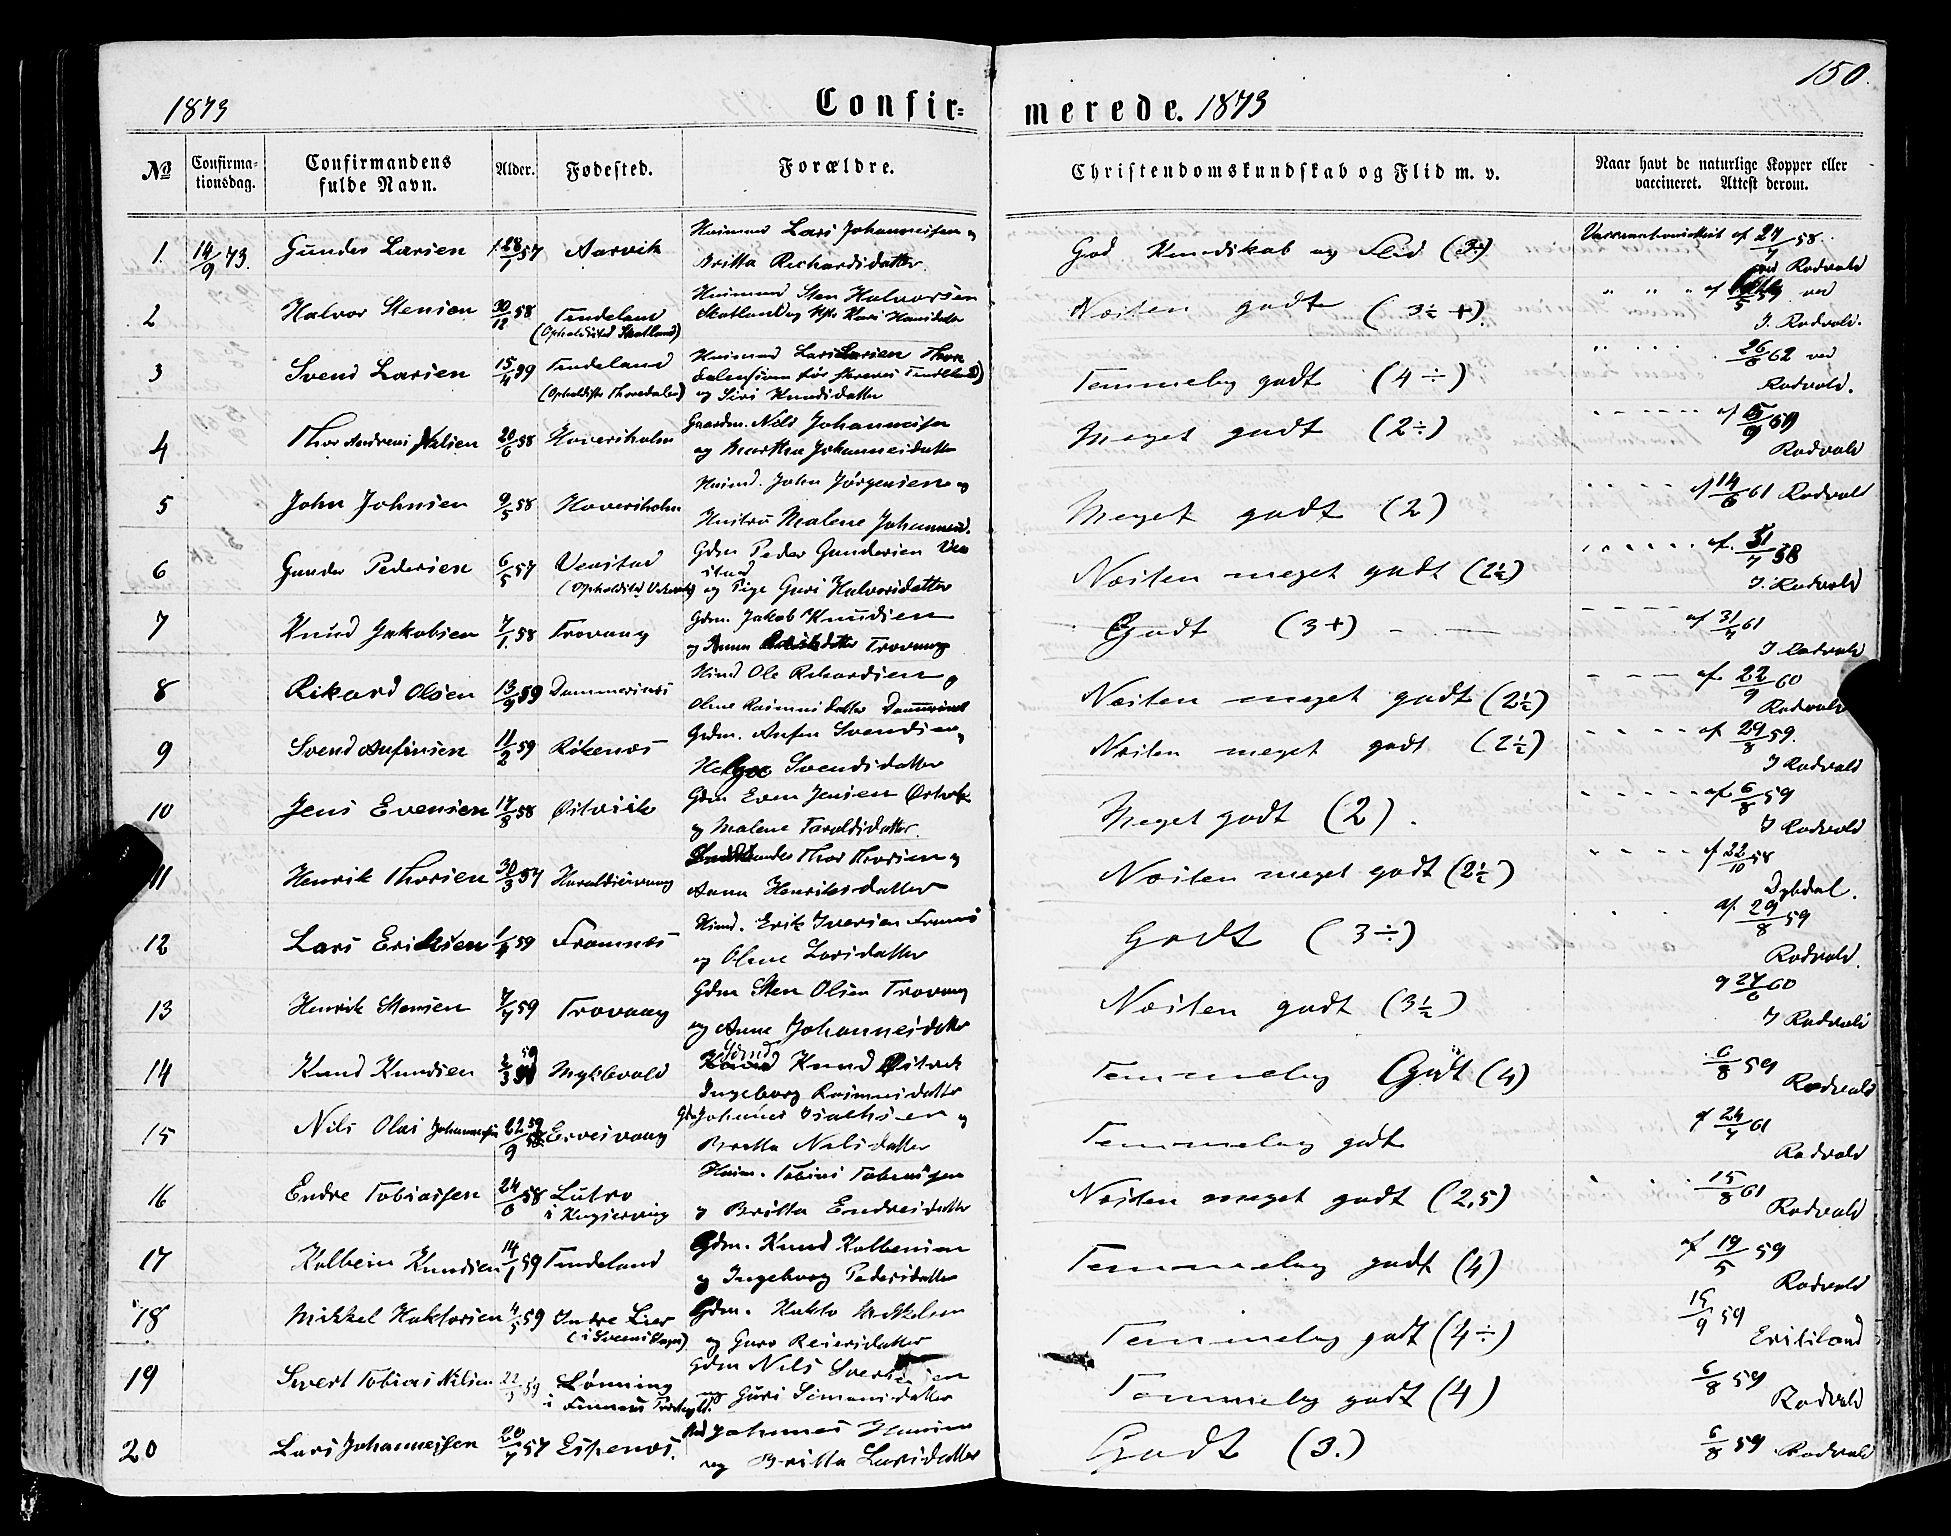 150.
1873 Confir= merede. 1873
No Confirma-tionsdag. Confirmandens fulde Navn. Alder. Fødested. Forældre. Christendomskundskab og Flid m. v. Naar havt de naturlige Kopper eller vaccineret. Attest derom.
1 14/9 73. Gunder Larsen 28/1 57 Aarvik Huusmand Lars Johannessen og God Kundskab og Flid (3+) af 27/7 58
Britta Richardsdatter. ved Rødvold
2 Halvor Stensen 30/12 58 Tendeland Huusmand Sten Halvorsen Næsten godt (3½ +). " " " af 59 ved
(Opholdssted Skotland) Skotland og Kari Hansdatter J. Rødvold.
3 Svend Larsen 15/4 59 Tendeland Huusmand Lars Larsen Temmelig godt (4 ÷) 26/8 62 ved
og Siri Knudsdatter Rødvold.
4 Thor Andreas Nilsen 20/6 58 Hoversholm Gaardm. Nils Johannessen Meget godt (2÷) af 5/9 60
og Martha Johannesdatter Rødvold
5 John Johnsen 9/5 58 Hoversholm Huusmd. John Jørgensen og Meget godt (2) af 14/6 61 Rødvold
Hustru Malene Johannesd.
6 Gunder Pedersen 6/5 57 Veastad Gdm Peder Gundersen Vea Næsten meget godt (2½) af 31/7 58
stad og Pige Guri Halvorsdatter J. Rødvold
7 Knud Jakobsen 7/1 58 Trovaag Gdm. Jakob Knudsen Godt (3+) af 31/7 61
og Anna Trovaag J Rødvold
8 Rikard Olsen 13/9 59 Dommersnes Huusmd Ole Richardsen og Næsten meget godt (2½) af 22/9 60
Olene Rasmusdatter Dommersnes Rødvold
9 Svend Anfinsen 11/2 59 Røkenes Gdm. Anfin Svendsen Næsten meget godt (2½) af 29/8 59.
Helge Svendsdatter J Rødvold
10 Jens Evensen 17/8 58 Østvik Gdm Even Jensen Østvik Meget godt (2). af 6/8 59
og Malene Taraldsdatter. J Rødvold
11 Henrik Thorsen 30/3 57 Haraldseivaag Thor Thorsen og Næsten meget godt (2½) af 22/10 58
Anna Henriksdatter Dybdal.
12 Lars Eriksen 1/4 59 Framnes Huusmd. Erik Iversen Framnes Godt (3÷) af 29/8 59
og Olene Larsdatter Rødvold.
13 Henrik Stensen 7/7 59 Trovaag Gdm Sten Olsen Trovaag Næsten godt (3½) af 27/6 60
og Anne Johannesdatter J Rødvold
14 Knud Knudsen 2/3 59 Myklevold Knud Østvik Temmelig Godt (4) 6/8 59
Ingeborg Rasmusdatter Rødvold
15 Nils Olai Johannessen 22/9 59 Eireivaag Gdm Johannes Isaksen og Temmelig godt af 24/7 61
Britta Nilsdatter Rødvold
16 Endre Tobiassen 24/6 58 Lutro Huusm. Tobias Tobiassen Næsten meget godt (2,5) 15/8 61
og Britta Endresdatter Rødvold
17 Kolbein Knudsen 14/1 59 Tendeland Gdm. Knud Kolbensen Temmelig godt (4) af 19/5 59
og Ingeborg Pedersdatter Rødvold
18 Mikkel Haktorsen 4/5 59 Indre Lier Gdm. Haktor Mikkelsen Temmelig godt (4÷) 15/9 59
og Guro Reiersdatter Erikstad
19 Sivert Tobias Nilsen 22/3 59 Lønning Gdm Nils Sivertsen Temmelig godt (4) 6/8 59
og Guri Simonsdatter Rødvold
20 Lars Johannessen 20/7 57 Espenes. Johannes Hansen Godt (3.) 6/8 59 Rødvold
og Britta Larsdatter